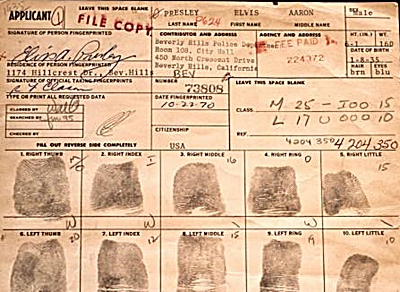 APPLICANT 1
LEAVE THIS SPACE BLANK
FILE COPY
PRESLEY ELVIS AARON
LAST NAME FIRST NAME MIDDLE NAME
Male
SIGNATURE OF PERSON FINGERPRINTED
Elvis A Presley
RESIDENCE OF PERSON FINGERPRINTED
1174 Hillcrest Dr., Bev.Hills
SIGNATURE OF OFFICIAL TAKING FINGERPRINTS
CONTRIBUTOR AND ADDRESS
Beverly Hills Police
Room 107, City Hall
450 North Crescent Drive
Beverly Hills, California
BEV
AGENCY AND ADDRESS
FEE PAID
HT.(IN.) WT.
6-1 160
DATE OF BIRTH
1-8-35
HAIR EYES
brn blu
NUMBER
73808
LEAVE THIS SPACE BLANK
TYPE OR PRINT ALL REQUESTED DATA
CLASSED BY
SEARCHED BY
DATE FINGERPRINTED
10-22-70
CLASS
M 25-I00 15
L 17 U 000 10
CITIZENSHIP
USA
4204 350 4 204 350
FILL OUT REVERSE SIDE COMPLETELY
1. RIGHT THUMB
2. RIGHT INDEX
3. RIGHT MIDDLE
4. RIGHT RING
5. RIGHT LITTLE
I 16 O 15
W W
6. LEFT THUMB
7. LEFT INDEX
8. LEFT MIDDLE
9. LEFT RING
10. LEFT LITTLE
20 12 15 10